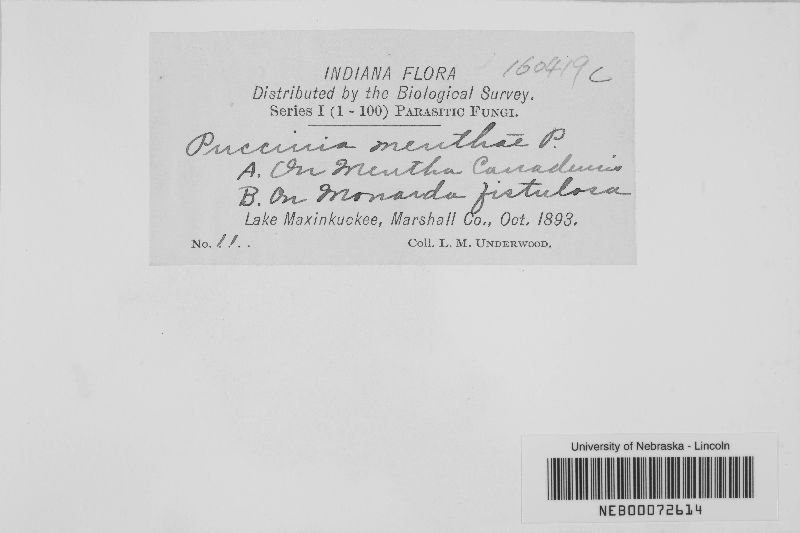 160419 C
INDIANA FLORA
Distributed by the Biological Survey.
Series I (1 - 100) PARASITIC FUNGI.
Puccinia menthae P.
A. On Mentha Canadensis
B. On Monarda fistulosa
Lake Maxinkuckee, Marshall Co., Oct. 1893.
No. 11. . Coll. L. M. UNDERWOOD.
University of Nebraska - Lincoln
NEB00072614